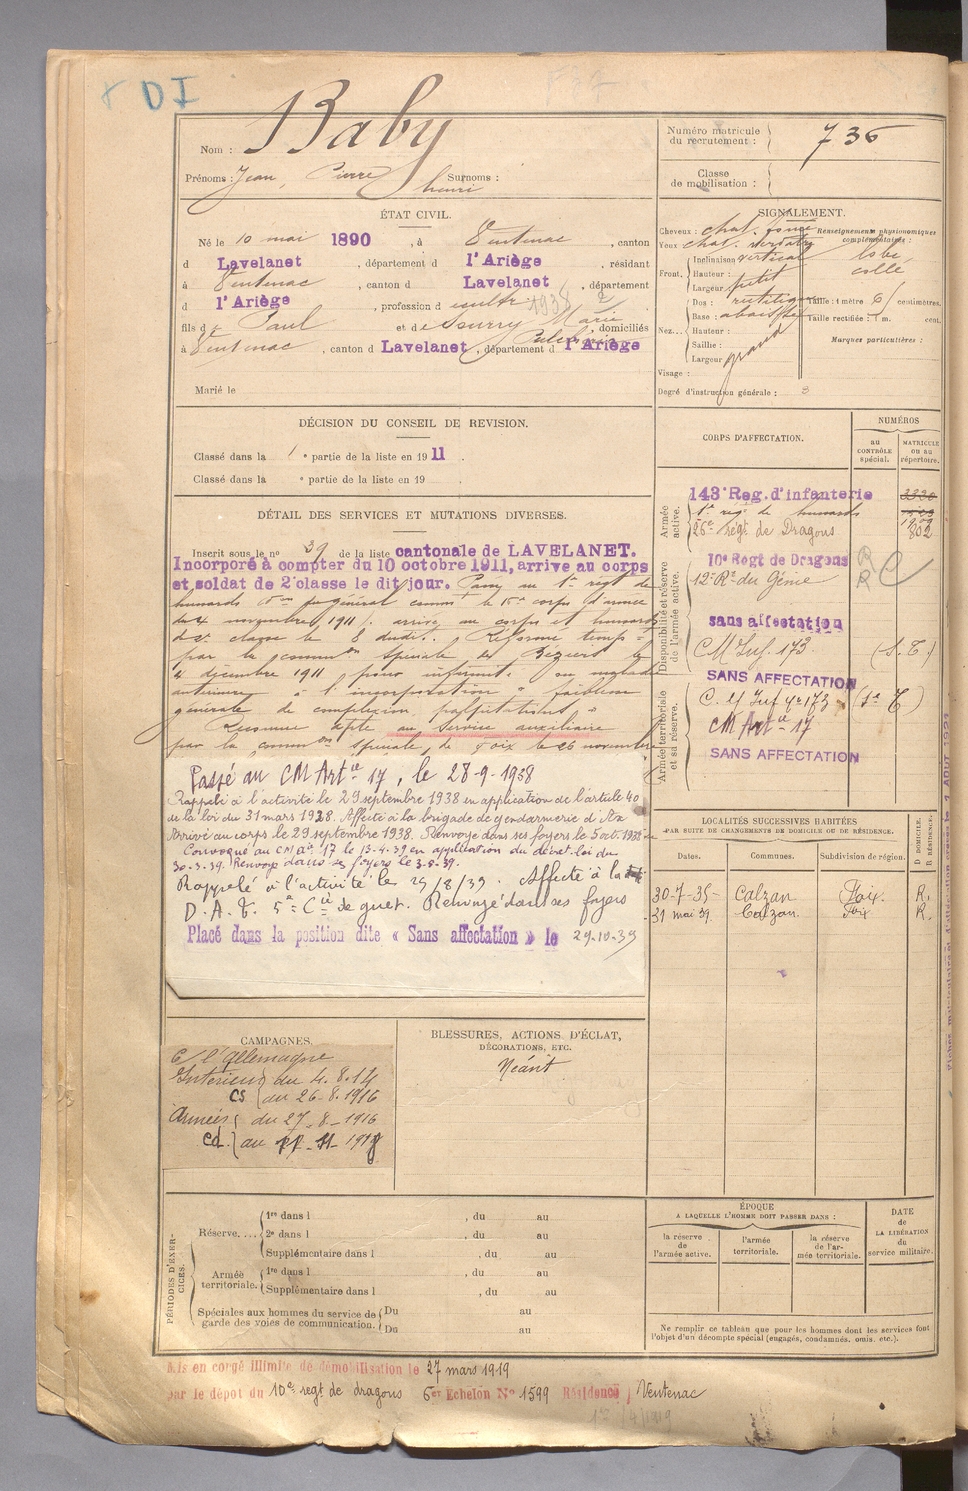 DI
Nom : Baby
Prénoms : Jean, Pierre Surnoms :
henri
Numéro matricule du recrutement : 736
Classe de mobilisation :
ÉTAT CIVIL.
Né le 10 mai 1890, à Ventenac, canton
d Lavelanet, département d l'Ariège, résidant
à Ventenac, canton d Lavelanet, département
d l'Ariège, profession d cultr. 1938
fils de Paul et de Sourry Marie domiciliés
à Ventenac, canton d Lavelanet, département d l'Ariège
Marié le
SIGNALEMENT.
Cheveux : chat. foncé
Yeux chat. verdâtre
Renseignements physionomiques complémentaires :
lobe
collé
Front. Inclinaison vertical
Hauteur :
Largeur petit
Nez... Dos : rectiligne
Base : abaissée
Hauteur :
Saillie :
Largeur grand
Taille : 1 mètre 61 centimètres.
Taille rectifiée : 1 m. cent.
Marques particulières :
Visage :
Degré d'instruction générale : 3
DÉCISION DU CONSEIL DE REVISION.
Classé dans la 1e partie de la liste en 1911.
Classé dans la e partie de la liste en 19 .
DÉTAIL DES SERVICES ET MUTATIONS DIVERSES.
Inscrit sous le no 39 de la liste cantonale de LAVELANET.
Incorporé à compter du 10 octobre 1911, arrive au corps
et soldat de 2e classe le dit jour. Passé au 1er régt de
hussards le général comm le 15e corps d'armée
du 4 novembre 1911. arrivé au corps et hussard
de 2e classe le 8 dudit. Réformé temp
par la common spéciale de Béziers le
4 décembre 1911 pour infirmité ou maladie
antérieure à l'incorporation "faiblesse
générale de complexion, palpitations".
Reconnu apte au service auxiliaire
par la common spéciale de Foix le 26 novembre
Passé au CM Artie 17, le 28-9-1938
Rappelé à l'activité le 29 septembre 1938 en application de l'article 40
de la loi du 31 mars 1928. Affecté à la brigade de gendarmerie d'Ax
Arrivé au corps le 29 septembre 1938. Renvoyé dans ses foyers le 5 oct. 1938
Convoqué au CM Aie 17 le 13-4-39 en application du décret-loi du
30-3-39. Renvoyé dans ses foyers le 3-5-39.
Rappelé à l'activité les 25/8/39. Affecté à la
D.A.T. 5e Cie de guet. Renvoyé dans ses foyers
Placé dans la position dite « Sans affectation » le 29-10-39
CORPS D'AFFECTATION.
NUMÉROS
au CONTRÔLE spécial.
MATRICULE ou au répertoire.
Armée active.
143e Reg. d'infanterie
1er rég. de hussards
26e régt de Dragons 802
Disponibilité et réserve de l'armée active.
10e Régt de Dragons R
12e Rt du Génie R
sans affectation
CM Inf. 173 (S.T.)
SANS AFFECTATION
Armée territoriale et sa réserve.
C. M Inf 173
CM Art ie 17
SANS AFFECTATION
LOCALITÉS SUCCESSIVES HABITÉES
PAR SUITE DE CHANGEMENTS DE DOMICILE OU DE RÉSIDENCE.
Dates. Communes. Subdivision de région. D. DOMICILE. R. RÉSIDENCE.
30-7-35 Calzan Foix R.
31 mai 39. Calzan. Foix R.
CAMPAGNES.
C/ l'Allemagne
Intérieur du 4.8.14
CS au 26-8-1916
Armées du 27-8-1916
CD. au 11-11-1918
BLESSURES, ACTIONS D'ÉCLAT,
DÉCORATIONS, ETC.
Néant
PÉRIODES D'EXERCICES.
Réserve.... 1re dans l , du au
2e dans l , du au
Supplémentaire dans l , du au
Armée territoriale. 1re dans l , du au
Supplémentaire dans l , du au
Spéciales aux hommes du service de garde des voies de communication. Du au
Du au
ÉPOQUE
A LAQUELLE L'HOMME DOIT PASSER DANS :
la réserve de l'armée active.
l'armée territoriale.
la réserve de l'armée territoriale.
DATE de LA LIBÉRATION du service militaire.
Ne remplir ce tableau que pour les hommes dont les services font
l'objet d'un décompte spécial (engagés, condamnés, omis, etc.).
Mis en congé illimité de démobilisation le 27 mars 1919
par le dépôt du 10e régt de dragons 6er Echelon No 1599 Résidence Ventenac